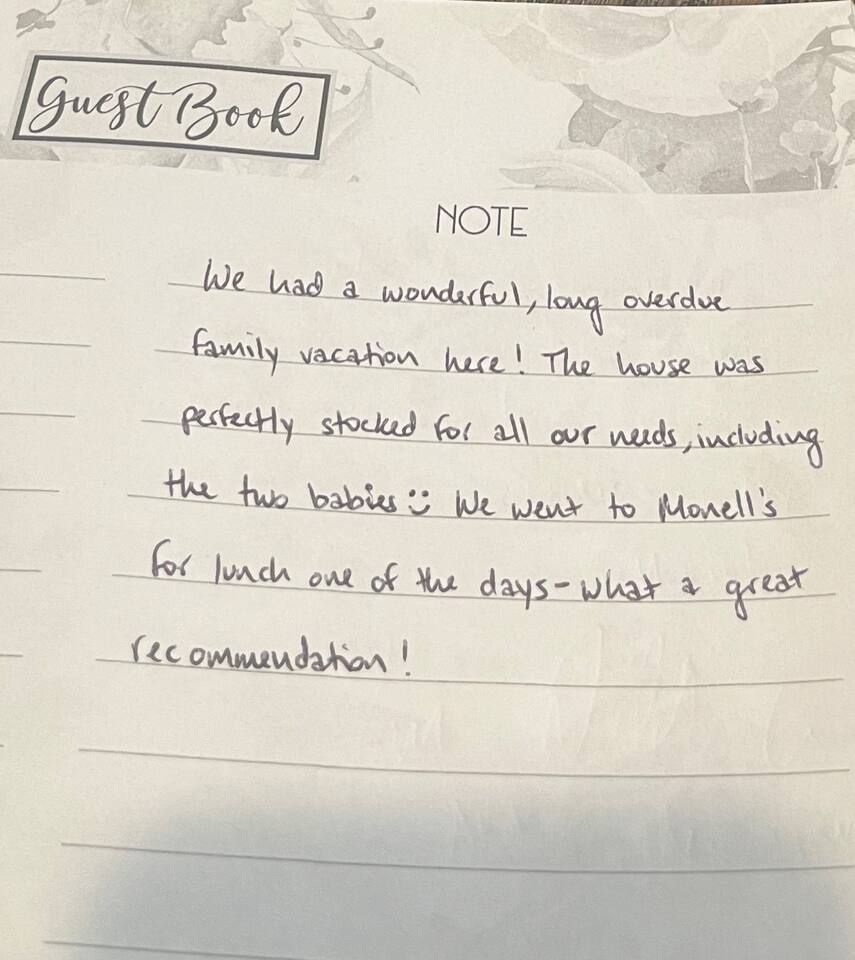 Guest Book
NOTE
We had a wonderful, long overdue
family vacation here! The house was
perfectly stocked for all our needs, including
the two babies :) We went to Monell's
for lunch one of the days - what a great
recommendation!